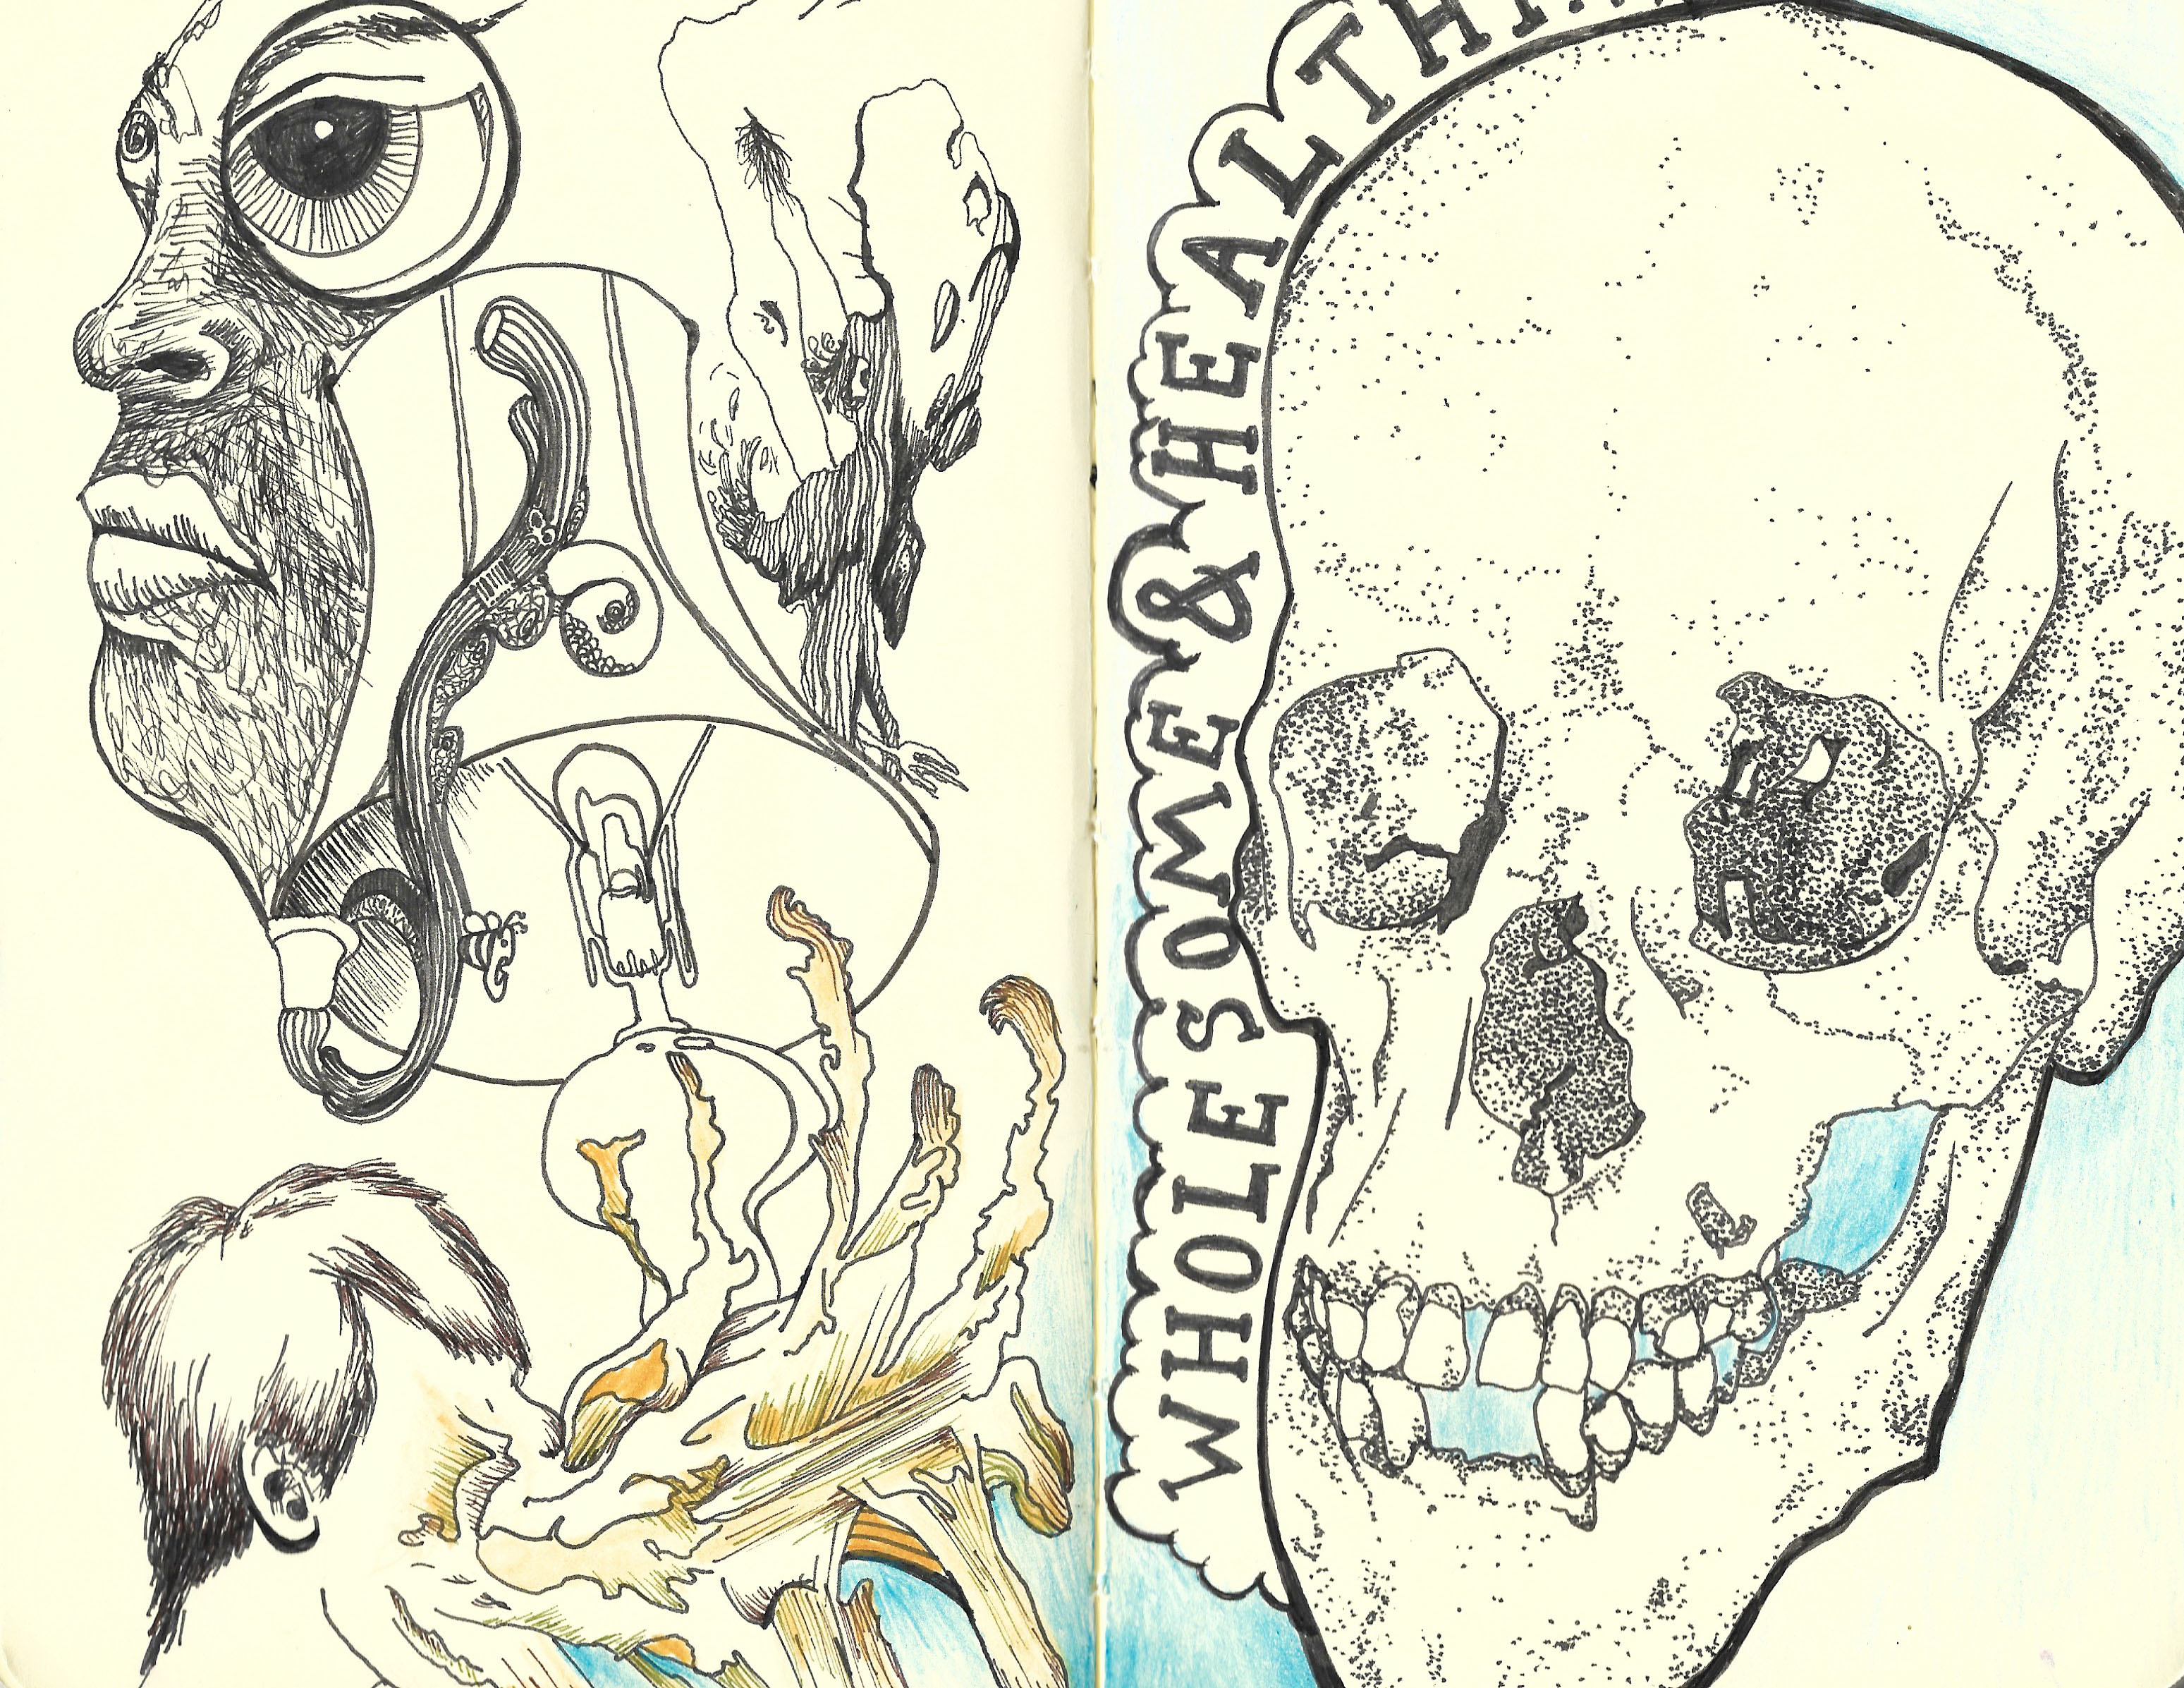 WHOLESOME & HEALTHI